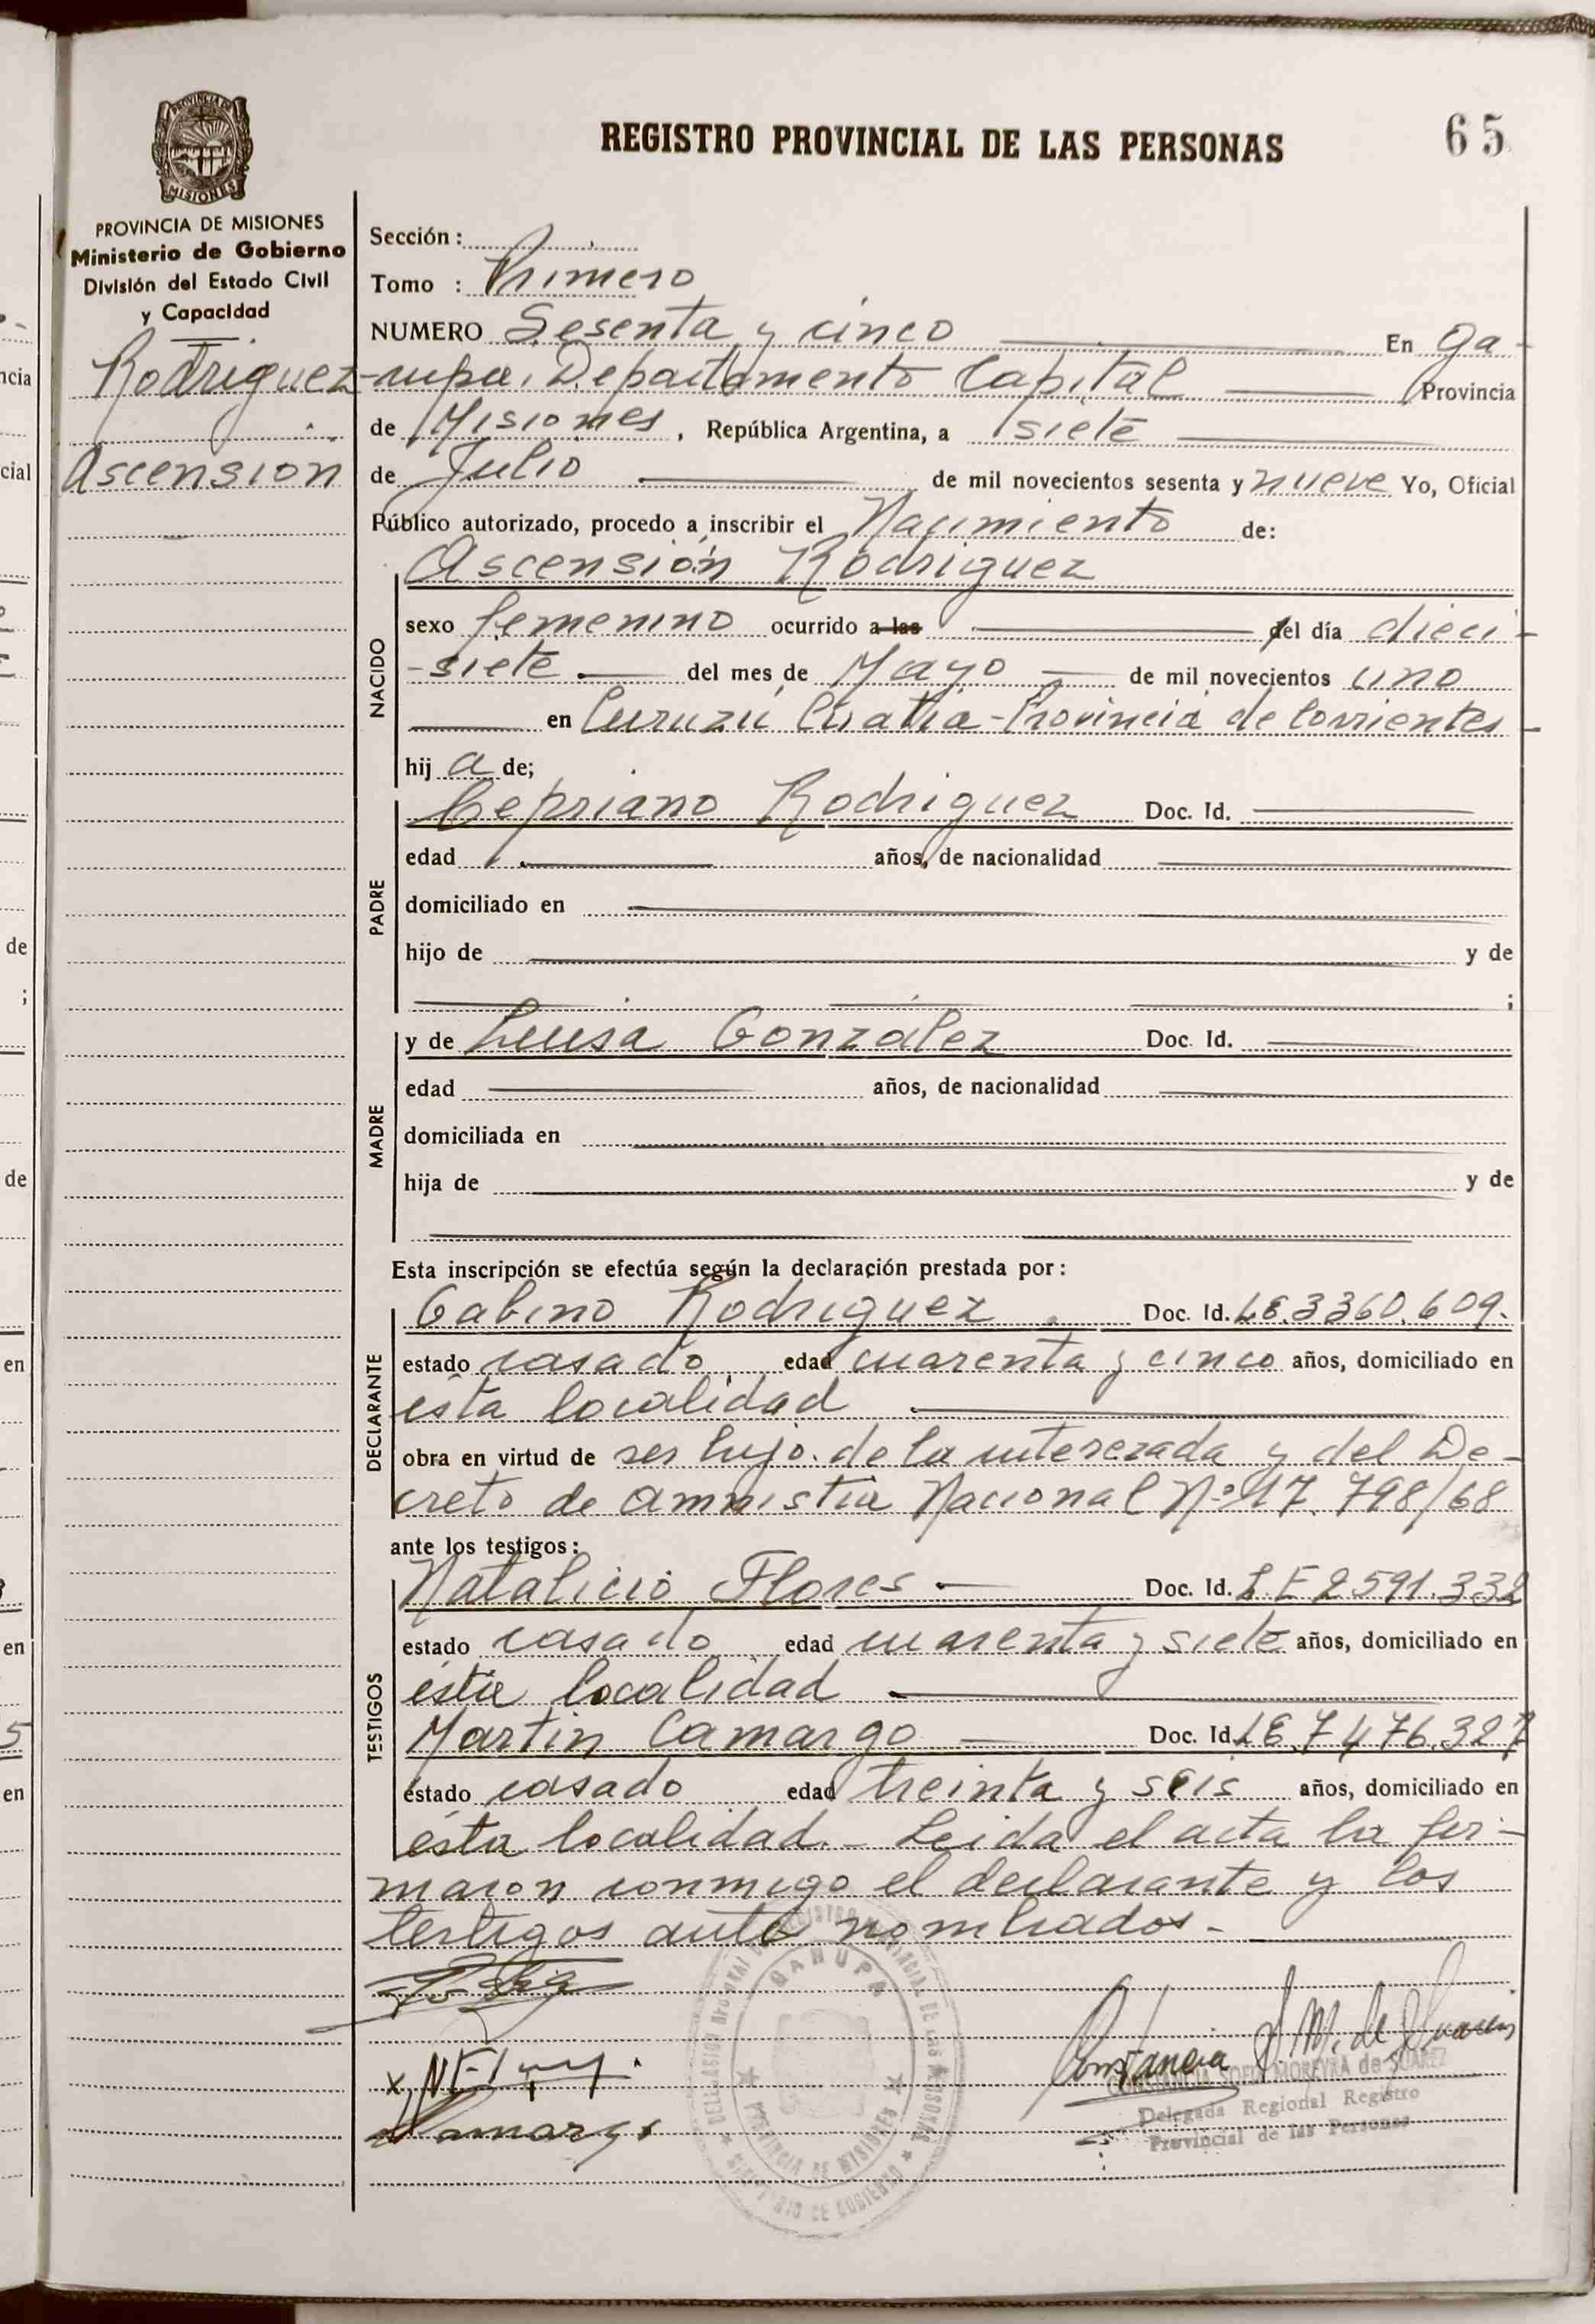 REGISTRO PROVINCIAL DE LAS PERSONAS
65
PROVINCIA DE MISIONES
MISIONES
PROVINCIA DE MISIONES
Ministerio de Gobierno
División del Estado Civil
y Capacidad
Rodriguez
Ascension
Sección :
Tomo : Primero
NUMERO Sesenta y cinco En Ga-
-rupa, Departamento Capital Provincia
de Misiones, República Argentina, a siete
de Julio de mil novecientos sesenta y nueve Yo, Oficial
Público autorizado, procedo a inscribir el Nacimiento de:
Ascensión Rodriguez
NACIDO
sexo femenino ocurrido a las del día dieci-
-siete del mes de Mayo de mil novecientos uno
en Curuzú Cuatia - Provincia de Corrientes
hij a de;
PADRE
Cepriano Rodriguez Doc. Id.
edad años, de nacionalidad
domiciliado en
hijo de y de
;
MADRE
y de Luisa González Doc. Id.
edad años, de nacionalidad
domiciliada en
hija de y de
Esta inscripción se efectúa según la declaración prestada por :
DECLARANTE
Gabino Rodriguez Doc. Id. LE.3360.609.
estado casado edad cuarenta y cinco años, domiciliado en
ésta localidad
obra en virtud de ser hijo de la interezada y del De-
creto de amnistia Nacional Nº 17.798/68
ante los testigos :
TESTIGOS
Natalicio Flores - Doc. Id. L.E 2.591.332
estado casado edad cuarenta y siete años, domiciliado en
ésta localidad
Martin Camargo Doc. Id. LE.7476.327
estado casado edad treinta y seis años, domiciliado en
ésta localidad. - Leida el acta la fir-
maron conmigo el declarante y los
testigos ante nombrados -
GARUPA
PROVINCIA DE MISIONES
MINISTERIO DE GOBIERNO
Camargo
Constancia S. M. de Suarez
CONSTANCIA SOFIA MOREYRA de SUAREZ
Delegada Regional Registro
Provincial de las Personas